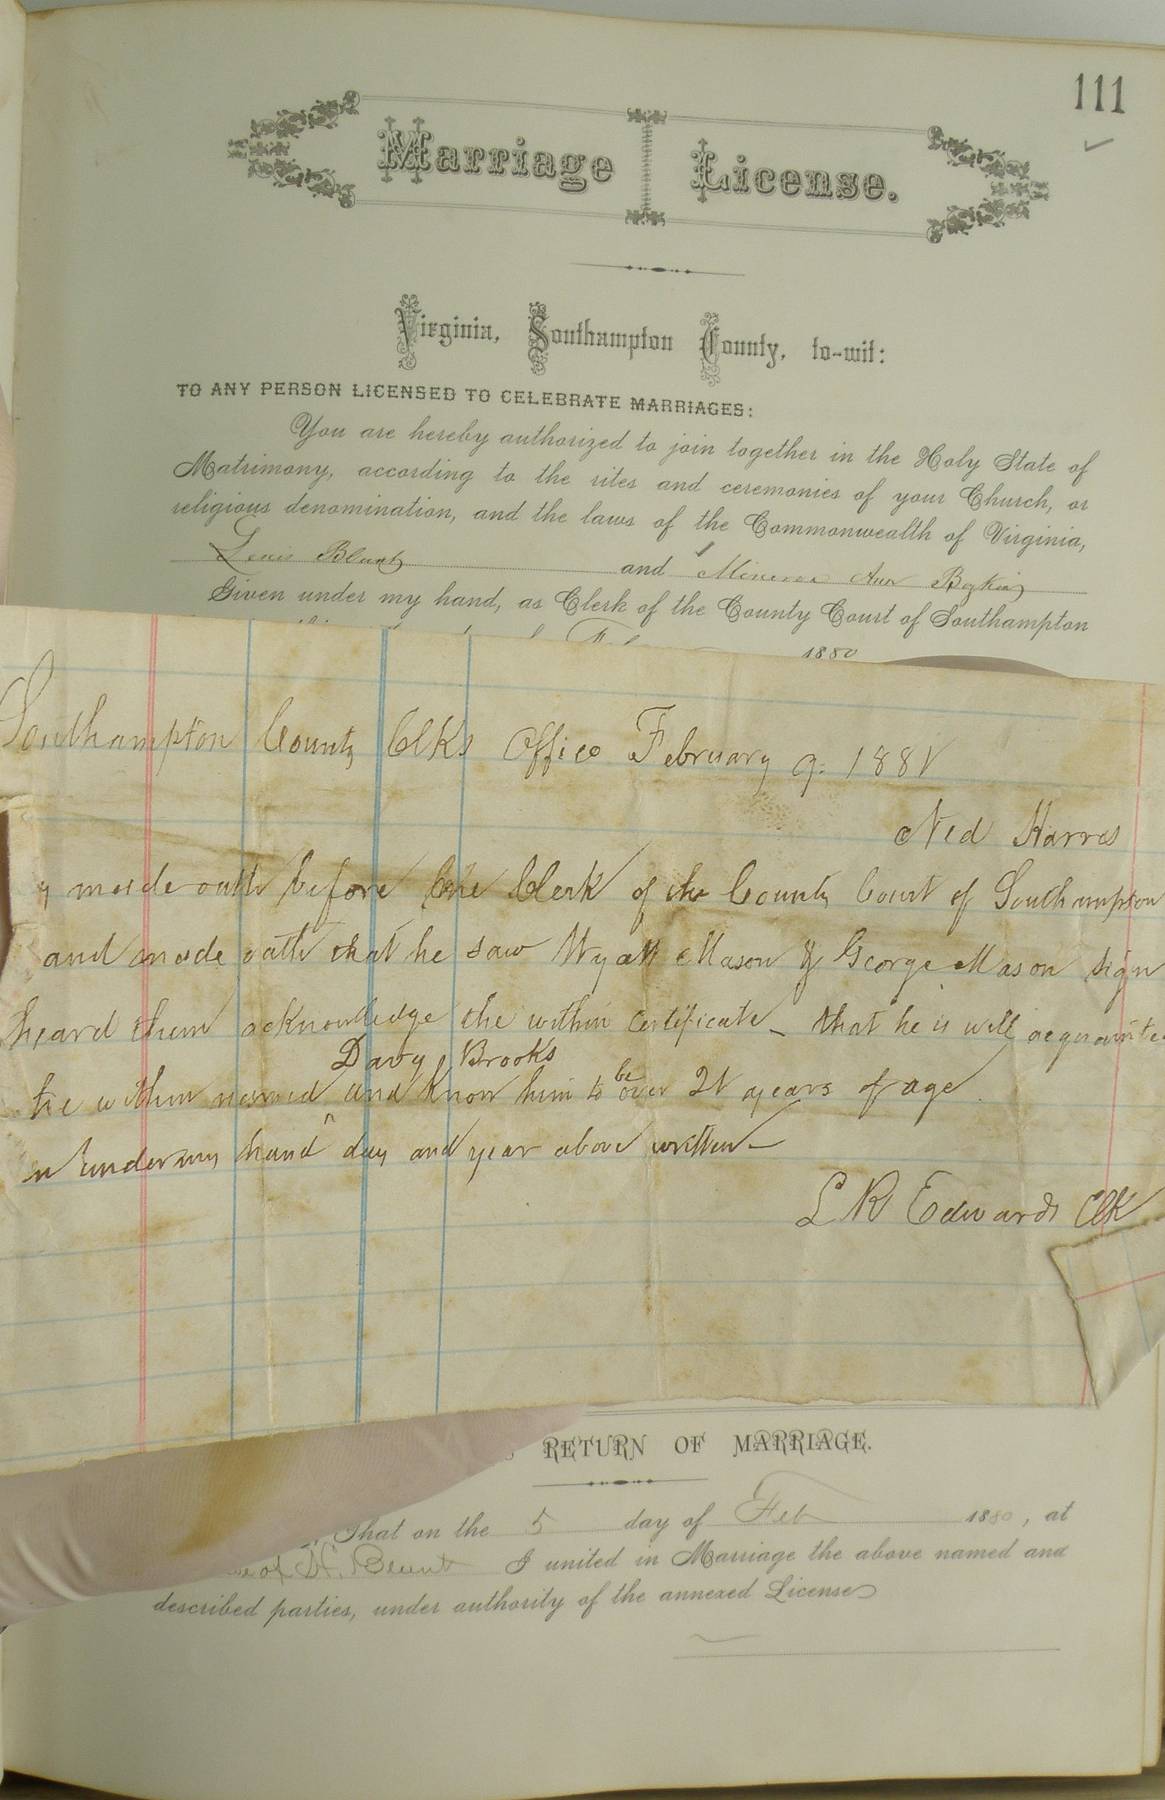 111
Marriage License.
Virginia, Southampton County, to-wit:
TO ANY PERSON LICENSED TO CELEBRATE MARRIAGES:
You are hereby authorized to join together in the Holy State of
Matrimony, according to the rites and ceremonies of your Church, or
religious denomination, and the laws of the Commonwealth of Virginia,
Lewis Blunt and Minerva Ann Boykin
Given under my hand, as Clerk of the County Court of Southampton
1880
Southampton County Clks Office February 9. 1881
Ned Harris
made oath before the Clerk of the County Court of Southampton
and made oath that he saw Wyatt Mason & George Mason sign
heard them acknowledge the within certificate that he is well acquainte
Davy Brooks
he within named ^ and know him to be over 21 years of age
n under my hand day and year above written
L R Edwards Clk
RETURN OF MARRIAGE.
That on the 5 day of Feb 1880, at
of N. Blunt I united in Marriage the above named and
described parties, under authority of the annexed License